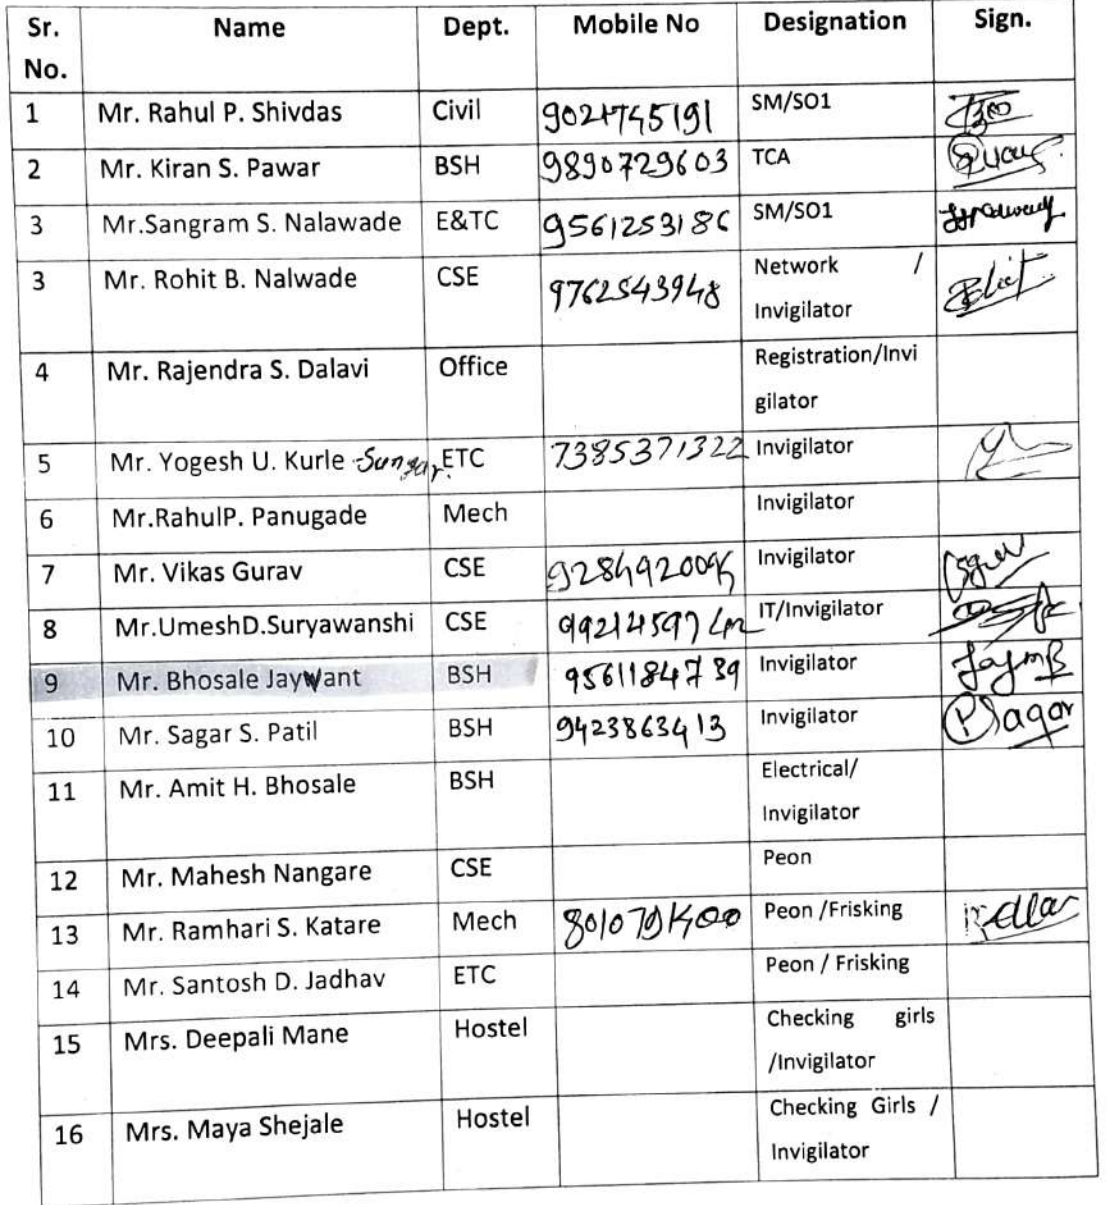 Sr. No. Name Dept. Mobile No Designation Sign.
1 Mr. Rahul P. Shivdas Civil SM/SO1
2 Mr. Kiran S. Pawar BSH 9890729603 TCA
3 Mr.Sangram S. Nalawade E&TC 9561253186 SM/SO1
3 Mr. Rohit B. Nalwade CSE 9762543948 Network /
Invigilator
4 Mr. Rajendra S. Dalavi Office Registration/Invi
gilator
5 Mr. Yogesh U. Kurle ETC 7385371322 Invigilator
6 Mr.RahulP. Panugade Mech Invigilator
7 Mr. Vikas Gurav CSE Invigilator
8 Mr.UmeshD.Suryawanshi CSE IT/Invigilator
9 Mr. Bhosale Jaywant BSH 9561184739 Invigilator
10 Mr. Sagar S. Patil BSH 9423863413 Invigilator
11 Mr. Amit H. Bhosale BSH Electrical/
Invigilator
12 Mr. Mahesh Nangare CSE Peon
13 Mr. Ramhari S. Katare Mech Peon /Frisking
14 Mr. Santosh D. Jadhav ETC Peon / Frisking
15 Mrs. Deepali Mane Hostel Checking girls
/Invigilator
16 Mrs. Maya Shejale Hostel Checking Girls /
Invigilator